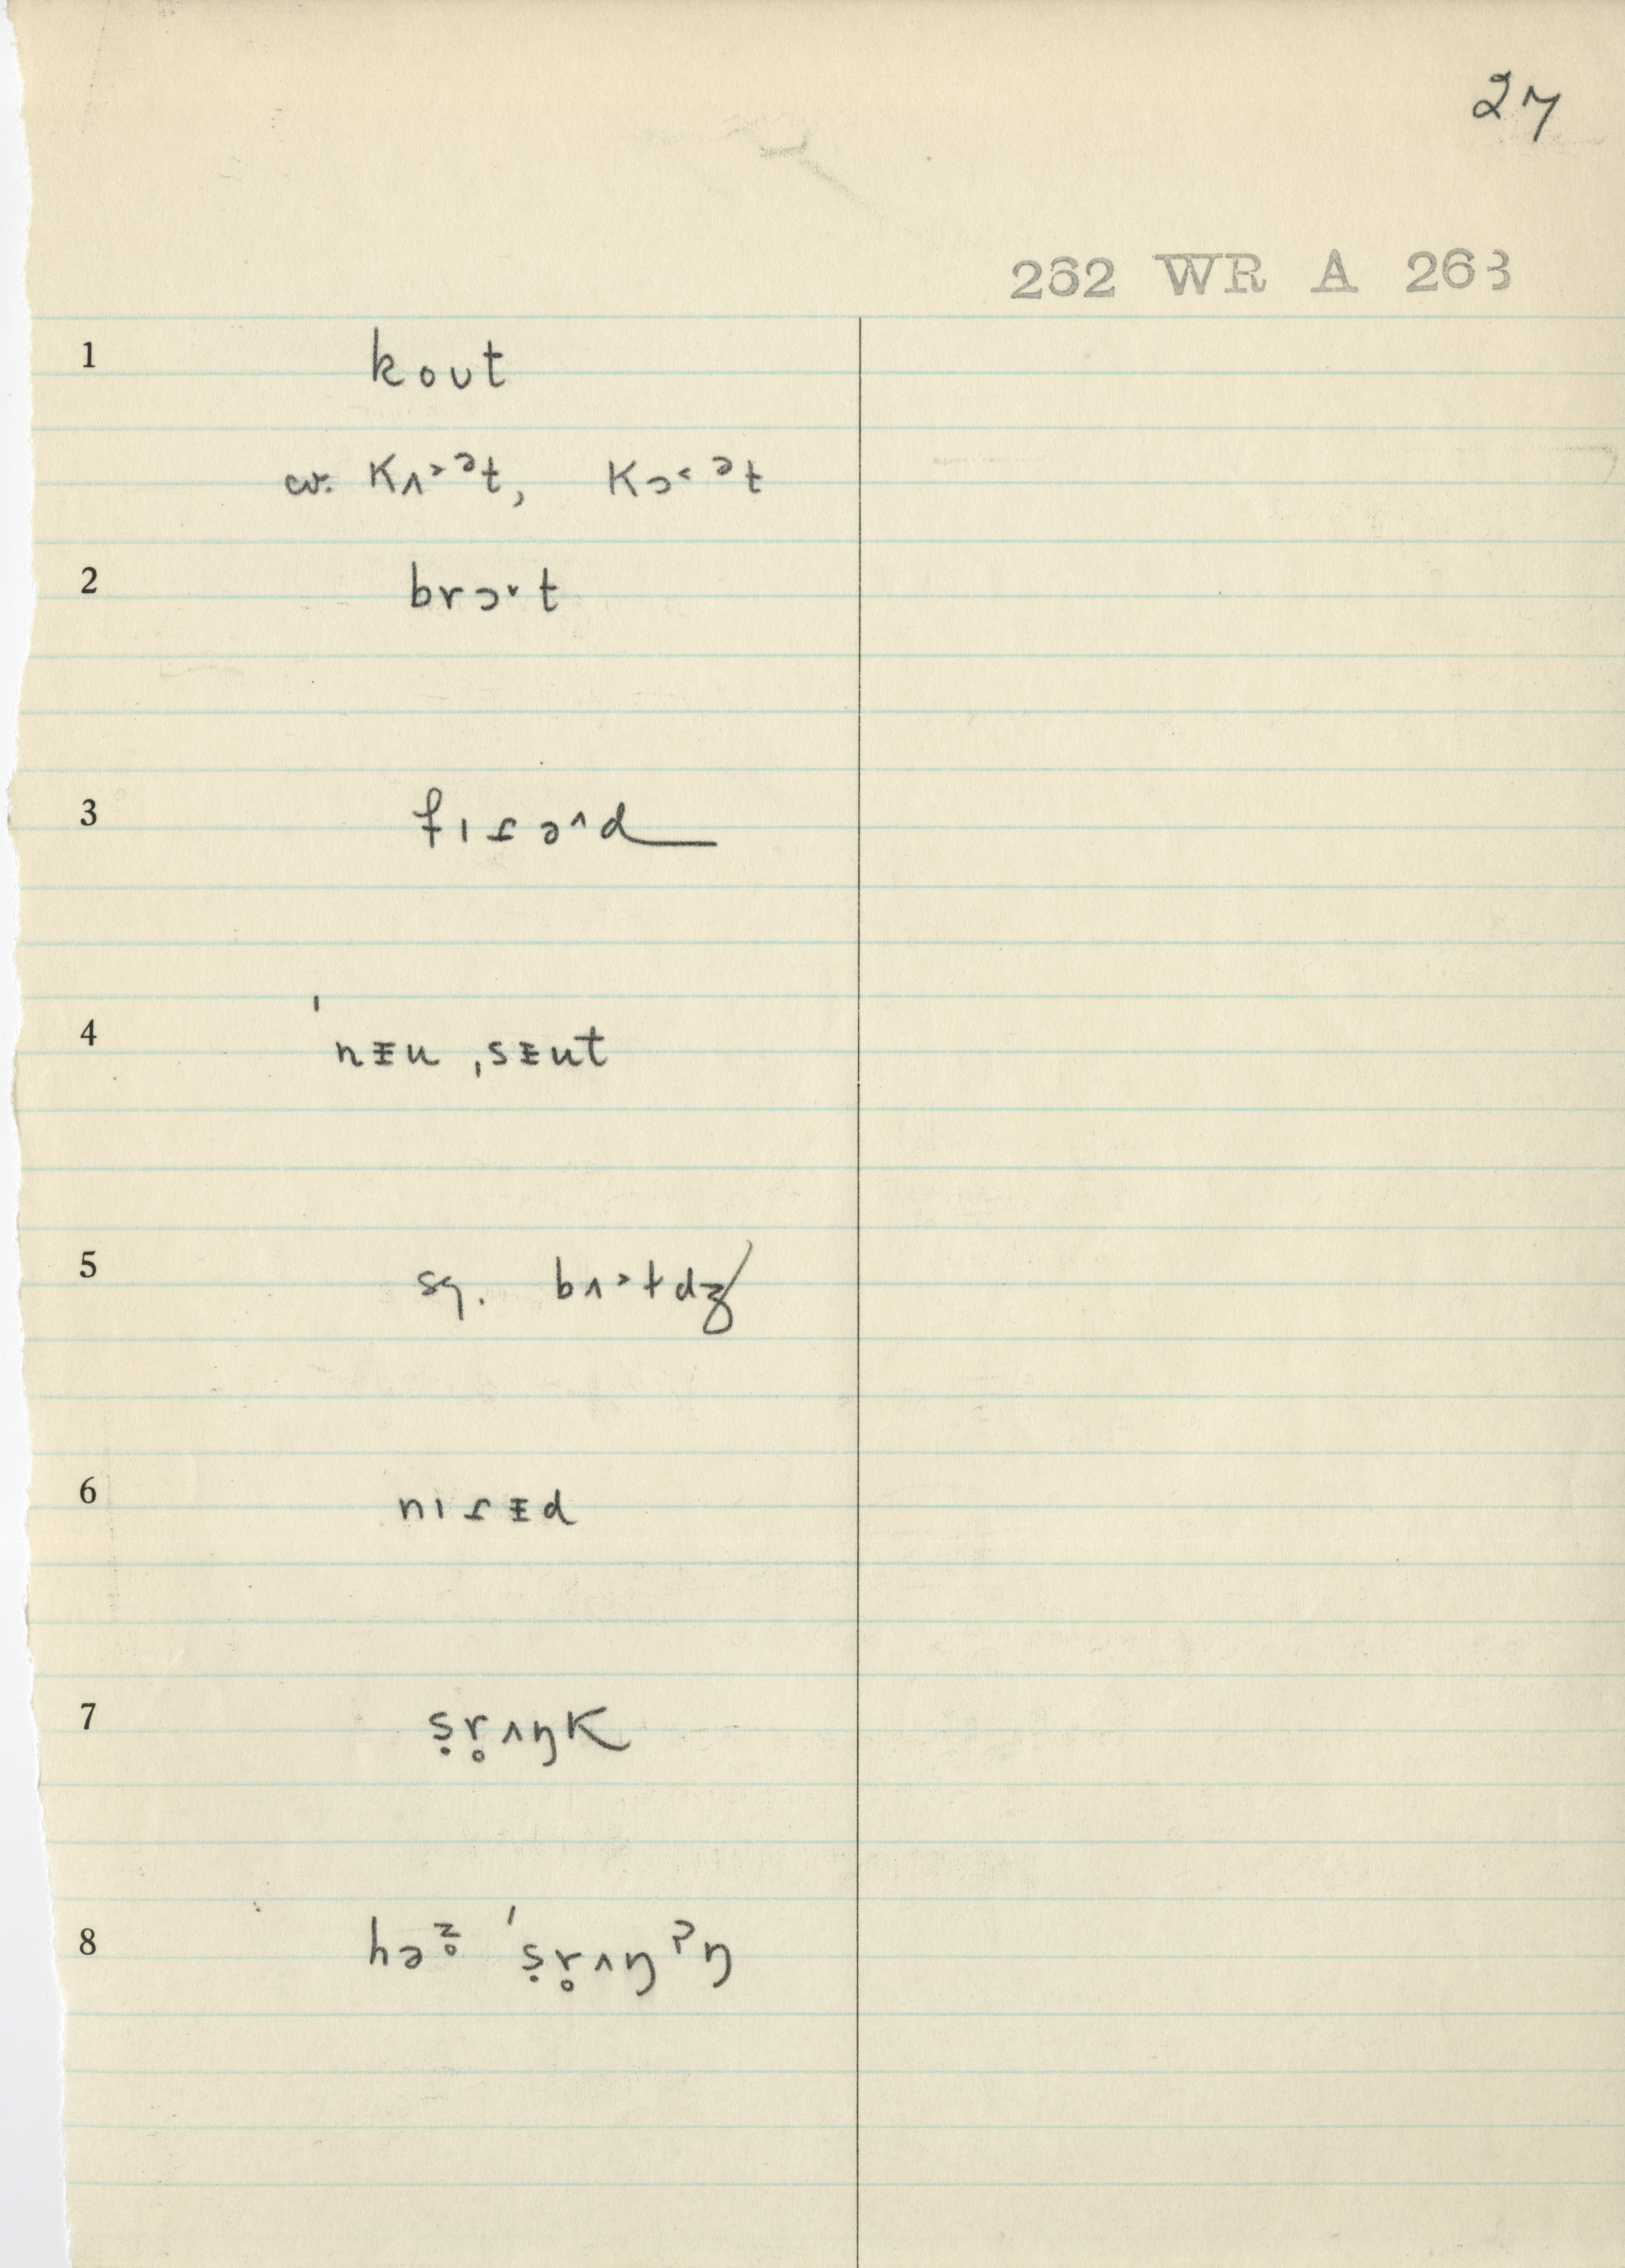 27
262 WR A 263
1 koʊt
cv. Kʌ˃ᵊt, Kɔ˂ᵊt
2 brɔ˅t
3 fɪɾə˄d
4 ˈnᵻu ˌsᵻut
5 sg. bʌ˃tdʒ
6 nɪɾᵻd
7 ṣr̥ʌŋK
8 həᶻ̥ ˈṣr̥ʌŋʔŋ